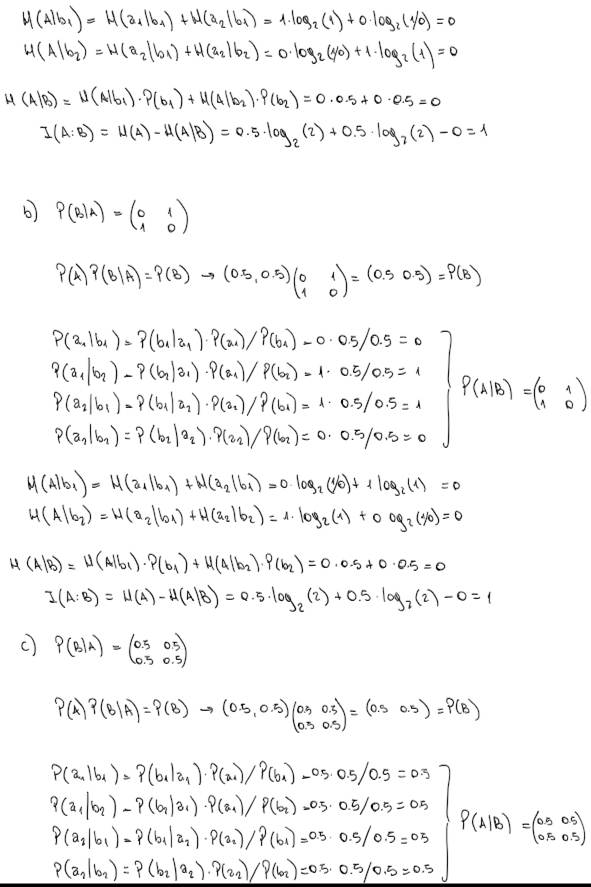 H(A|b₁) = H(a₁|b₁) + H(a₂|b₁) = 1·log₂(1) + 0·log₂(1/0) = 0
H(A|b₂) = H(a₂|b₁) + H(a₂|b₂) = 0·log₂(1/0) + 1·log₂(1) = 0
H(A|B) = H(A|b₁)·P(b₁) + H(A|b₂)·P(b₂) = 0·0.5 + 0·0.5 = 0
I(A:B) = H(A) - H(A|B) = 0.5·log₂(2) + 0.5·log₂(2) - 0 = 1
b) P(B|A) = (0 1
1 0)
P(A) P(B|A) = P(B) → (0.5, 0.5) (0 1
1 0) = (0.5 0.5) = P(B)
P(a₁|b₁) = P(b₁|a₁)·P(a₁)/P(b₁) = 0·0.5/0.5 = 0
P(a₁|b₂) = P(b₂|a₁)·P(a₁)/P(b₂) = 1·0.5/0.5 = 1
P(a₂|b₁) = P(b₁|a₂)·P(a₂)/P(b₁) = 1·0.5/0.5 = 1
P(a₂|b₂) = P(b₂|a₂)·P(a₂)/P(b₂) = 0·0.5/0.5 = 0
P(A|B) = (0 1
1 0)
H(A|b₁) = H(a₁|b₁) + H(a₂|b₁) = 0·log₂(1/0) + 1 log₂(1) = 0
H(A|b₂) = H(a₂|b₁) + H(a₂|b₂) = 1·log₂(1) + 0 og₂(1/0) = 0
H(A|B) = H(A|b₁)·P(b₁) + H(A|b₂)·P(b₂) = 0·0.5 + 0·0.5 = 0
I(A:B) = H(A) - H(A|B) = 0.5·log₂(2) + 0.5·log₂(2) - 0 = 1
c) P(B|A) = (0.5 0.5
0.5 0.5)
P(A) P(B|A) = P(B) → (0.5, 0.5) (0.5 0.5
0.5 0.5) = (0.5 0.5) = P(B)
P(a₁|b₁) = P(b₁|a₁)·P(a₁)/P(b₁) = 0.5·0.5/0.5 = 0.5
P(a₁|b₂) = P(b₂|a₁)·P(a₁)/P(b₂) = 0.5·0.5/0.5 = 0.5
P(a₂|b₁) = P(b₁|a₂)·P(a₂)/P(b₁) = 0.5·0.5/0.5 = 0.5
P(a₂|b₂) = P(b₂|a₂)·P(a₂)/P(b₂) = 0.5·0.5/0.5 = 0.5
P(A|B) = (0.5 0.5
0.5 0.5)